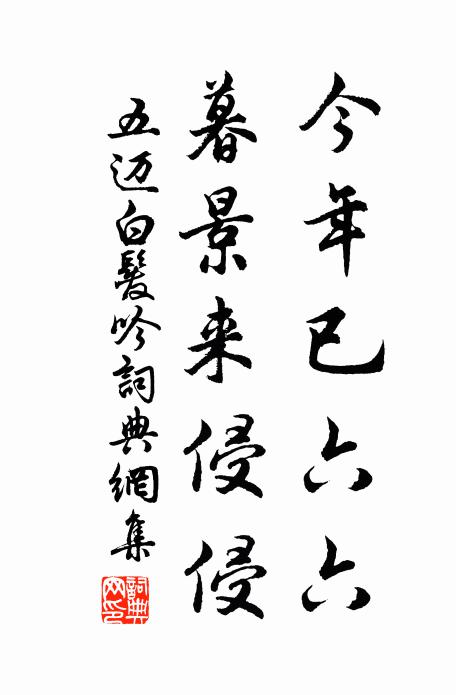 今年已六六
暮景来侵侵
五迈白髮吟詞典網集
詞典網印